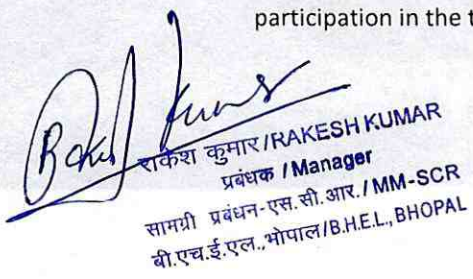 participation in the t
राकेश कुमार/RAKESH KUMAR
प्रबंधक / Manager
सामग्री प्रबंधन-एस.सी.आर./MM-SCR
बी.एच.ई.एल.,भोपाल/B.H.E.L., BHOPAL